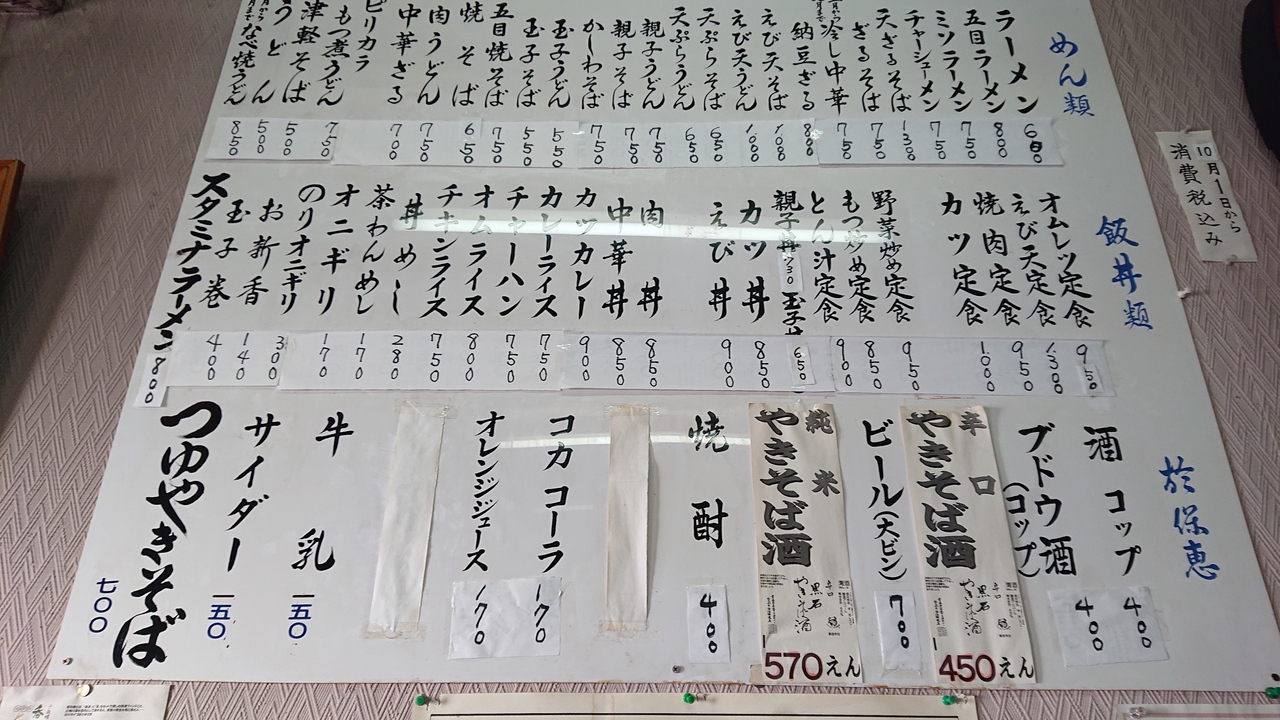 めん類
ラーメン 600
五目ラーメン 800
ミソラーメン 750
チャーシューメン 750
天ざるそば 1300
ざるそば 750
冷し中華 750
納豆ざる 800
えび天そば 1000
えび天うどん 1000
天ぷらそば 650
天ぷらうどん 650
親子うどん 750
親子そば 750
かしわそば 750
玉子そば 550
玉子うどん 550
五目焼そば 750
焼そば 650
肉うどん 750
中華ざる 700
ピリカラ
もつ煮うどん 750
津軽そば 500
うどん 500
なべ焼うどん 850
10月1日から
消費税込み
飯丼類
オムレツ定食 950
えび天定食 1300
焼肉定食 950
カツ定食 1000
野菜炒め定食 950
もつ炒め定食 850
とん汁定食 900
親子丼 730 玉子丼 650
カツ丼 850
えび丼 900
肉丼 850
中華丼 850
カツカレー 900
カレーライス 750
チャーハン 750
オムライス 800
チキンライス 750
丼めし 280
茶わんめし 170
オニギリ 170
のりオニギリ 300
お新香 140
玉子巻 400
スタミナラーメン 800
於保恵
酒 コップ 400
ブドウ酒
(コップ) 400
辛口
やきそば酒
450えん
ビール(大ビン) 700
純米
やきそば酒
570えん
焼酎 400
コカコーラ 170
オレンジジュース 170
牛乳 一五〇
サイダー 一五〇
つゆやきそば
七〇〇